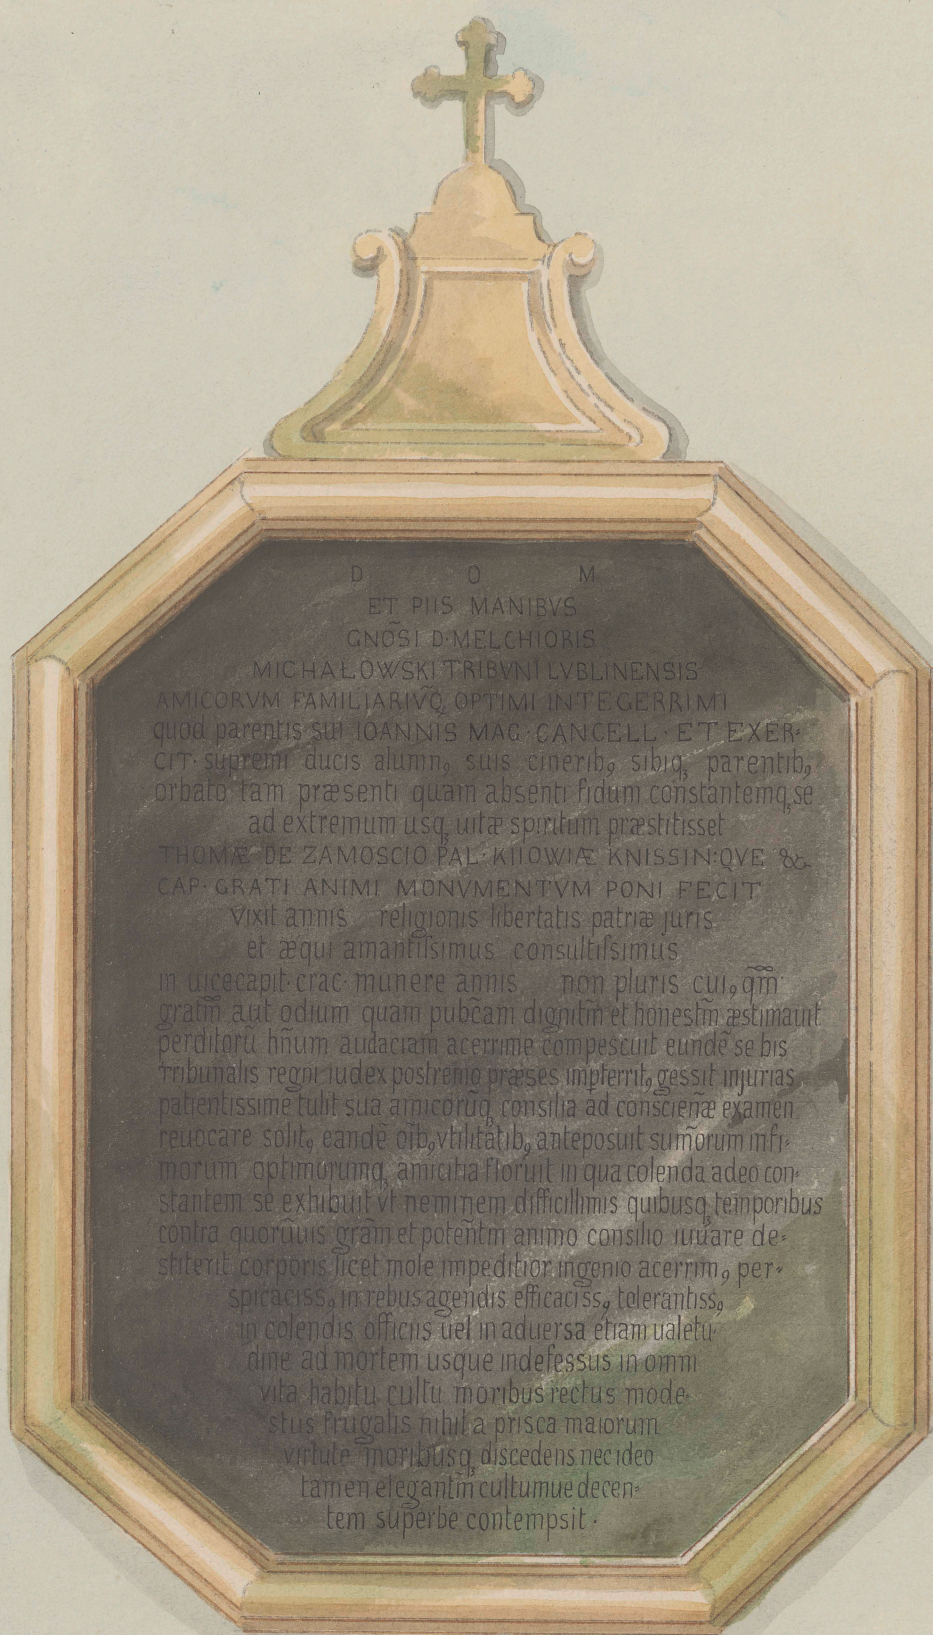 D O M
ET PIIS MANIBVS
GNOS̃I D·MELCHIORIS
MICHAŁOWSKI TRIBVNI LVBLINENSIS
AMICORVM FAMILIARIVQ̃, OPTIMI INTEGERRIMI
quod parentis sui IOANNIS MAG·CANCELL·ET EXER·
CIT· supremi ducis alumnꝰ suis cineribꝰ sibiqꝫ parentibꝰ
orbato tam præsenti quam absenti fidum constantemqꝫ se
ad extremum usqꝫ uitæ spiritum præstitisset
THOMÆ DE ZAMOSCIO PAL·KIIOWIÆ KNISSIN:QVE &c
CAP·GRATI ANIMI MONVMENTVM PONI FECIT
vixit annis religionis libertatis patriæ juris
et æqui amantiſsimus consultiſsimus
in uicecapit·crac·munere annis non pluris cuiꝰ qm̃
gratm̃ aut odium quam pubc̃am dignitm̃ et honestm̃ æstimauit
perditorũ hñum audaciam acerrime compescuit eundẽ se bis
Tribunalis regni iudex postremo præses impterritꝰ gessit injurias
patientissime tulit sua amicorũqꝫ consilia ad conscieñæ examen
reuocare solitꝰ eandẽ oĩbꝰ vtilitãtibꝰ anteposuit sum̃orum infi-
morum optimorumqꝫ amicitia floruit in qua colenda adeo con-
stantem se exhibuit vt neminem difficillimis quibusqꝫ temporibus
contra quorũuis grãm et poteñtm animo consilio iuuare de-
stiterit corporis licet mole impeditior ingenio acerrimꝰ per-
spicacissꝰ in rebus agendis efficacissꝰ tolerantissꝰ
in colendis officiis uel in aduersa etiam ualetu-
dine ad mortem usque indefessus in omni
vita habitu cultu moribus rectus mode-
stus frugalis nihil a prisca maiorum
virtute moribusqꝫ discedens nec ideo
tamen elegantm̃ cultumue decen-
tem superbe contempsit·